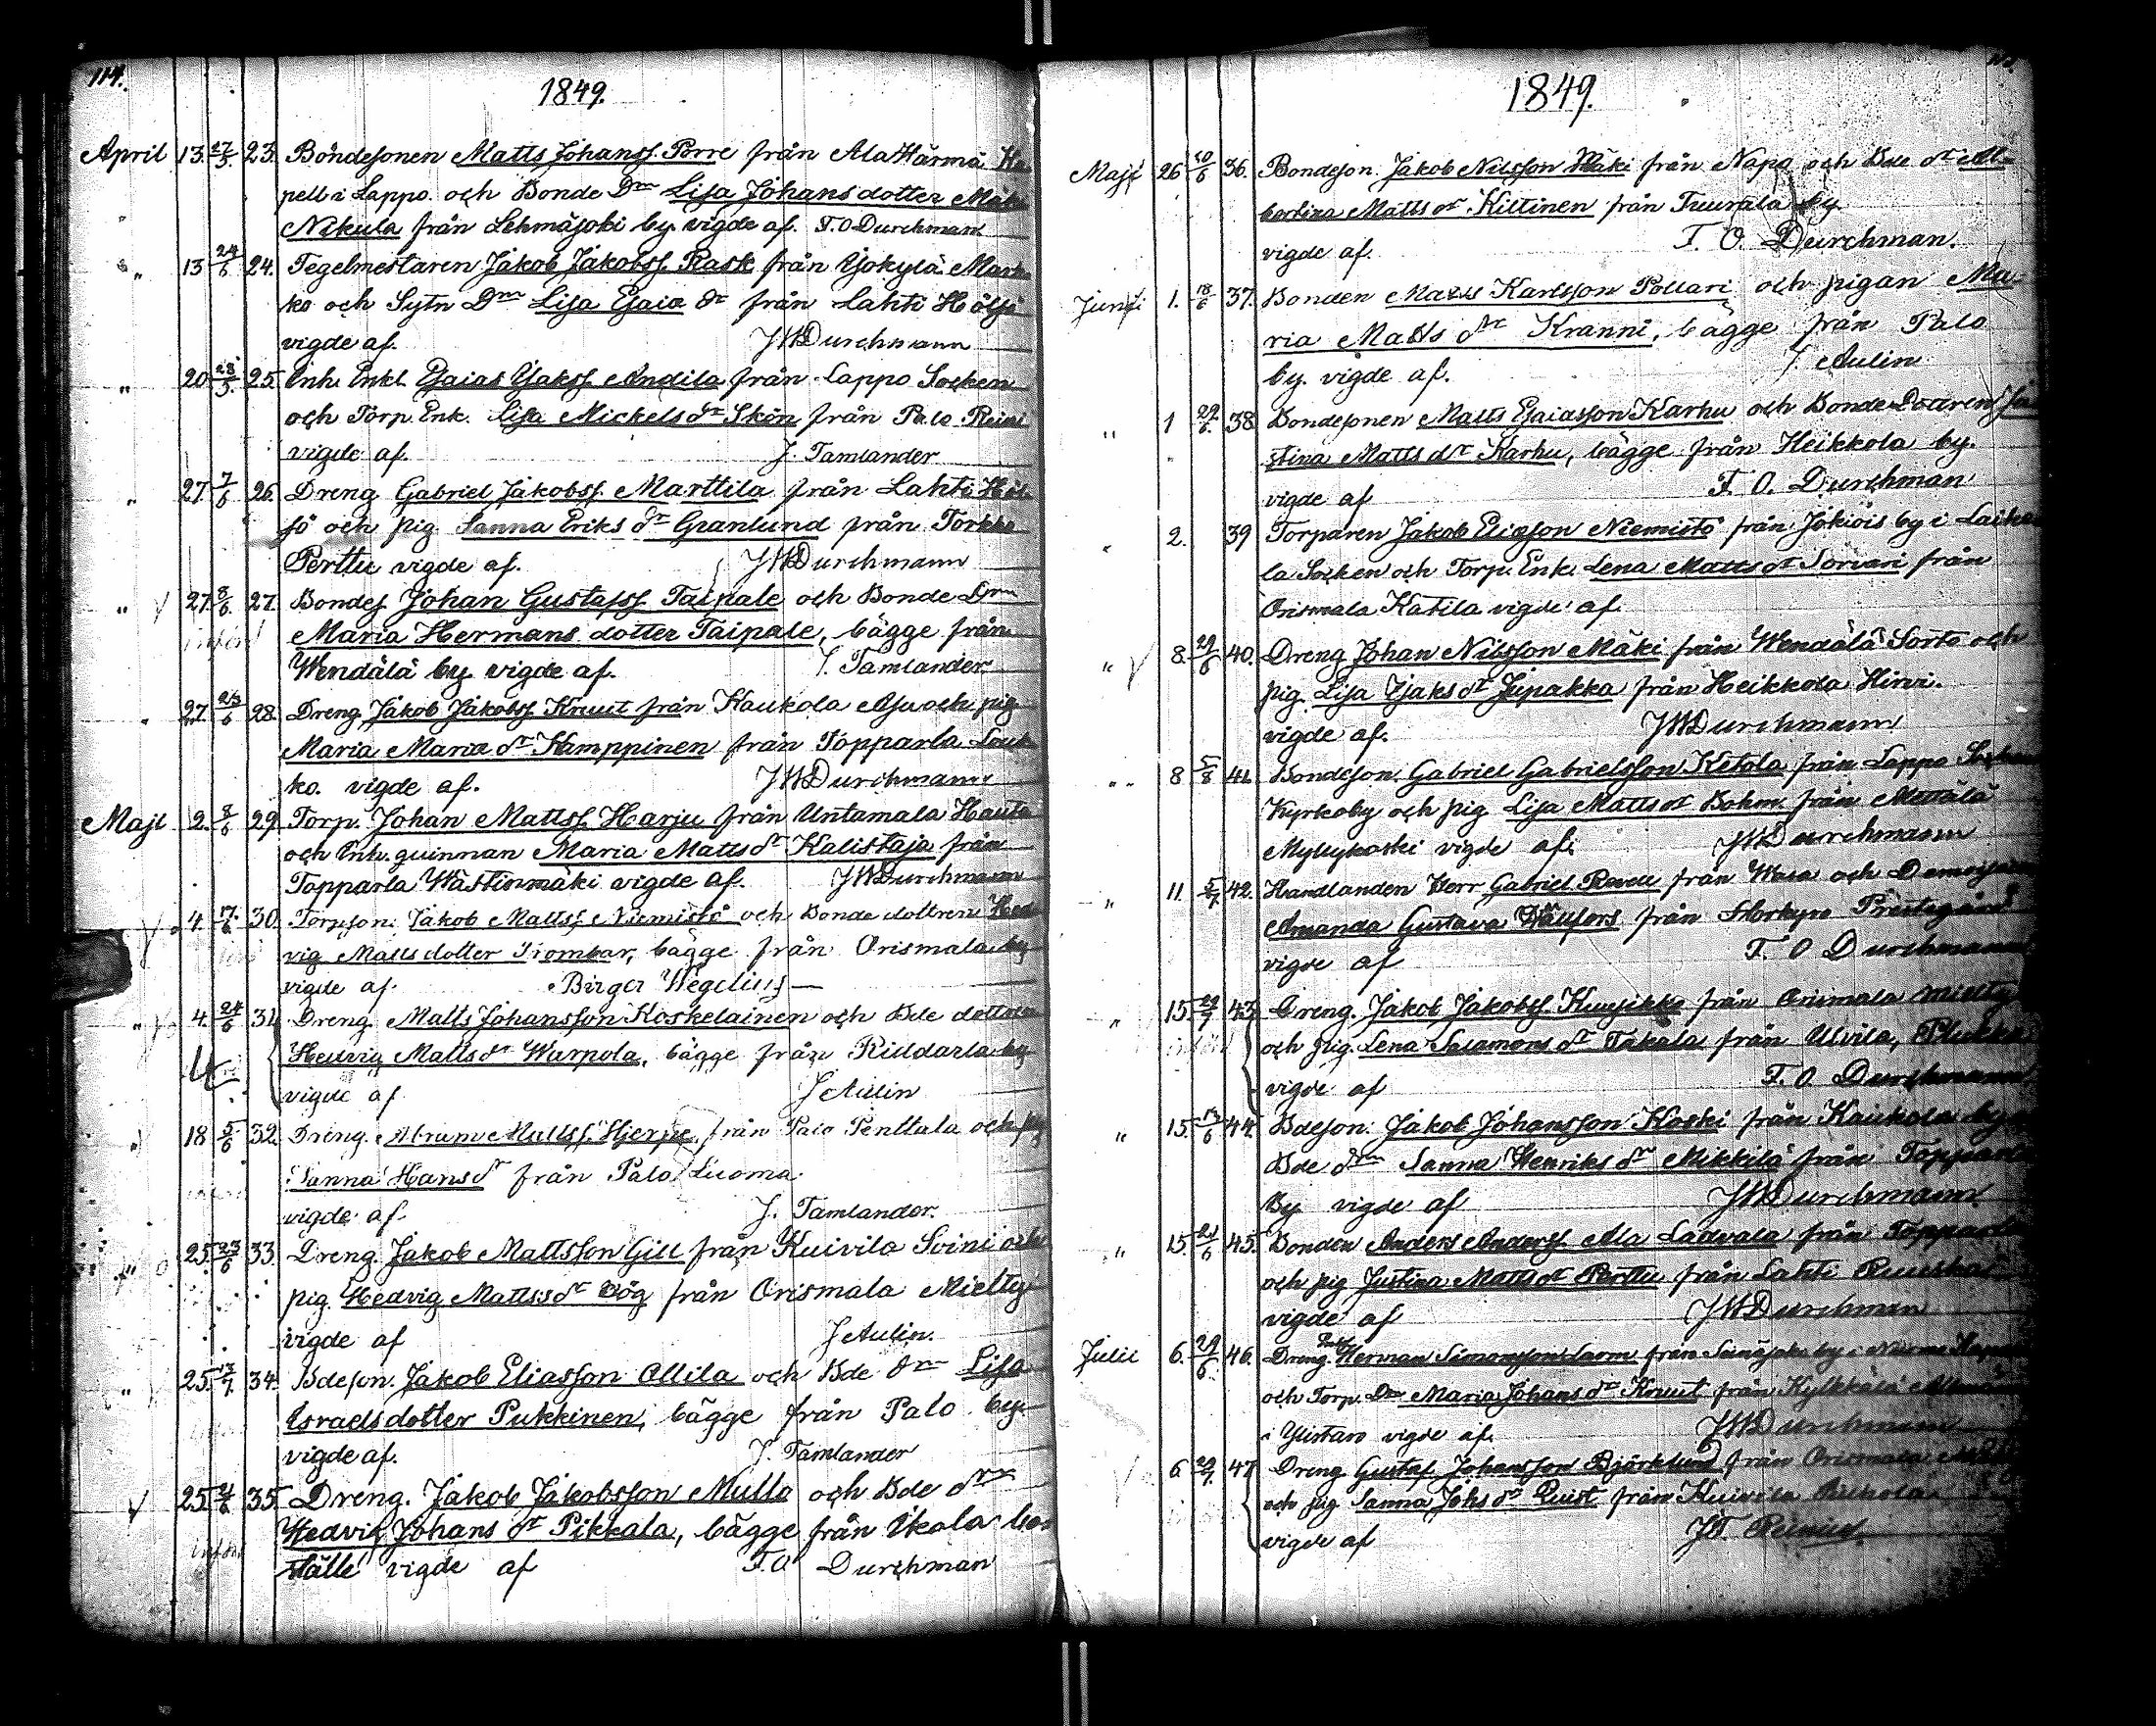 114.
1849.
April 13. 27/5. 23. Bondesonen Matts Johanss. Porre från Ala Härmä Ka
pell i Lappo och Bonde Drn Lisa Johans dotter Mäki
Nikula från Lehmäjoki by vigde af. F.O Durchman
" 13 24/6 24. Tegelmestaren Jakob Jakobss. Rask från Yjokylä Mark
ko och Sytn Drn Lisa Esaia dr från Lahti Höysö
vigde af. JWDurchmann
" 20 28/5. 25. Inh. Enkl. Esaias Isakss. Andila från Lappo Socken
och Torp. Enk. Lisa Mickels dr Skön från Palo Reini
vigde af. J. Tamlander
" 27. 7/6 26. Dreng Gabriel Jakobss. Marttila från Lahti Höi
sö och pig Sanna Eriks dr Granlund från Torkko
Perttu vigde af. JWDurchmann
" 27. 8/6. 27. Bondes Johan Gustafss. Taipale och Bonde Drn
införd Maria Hermans dotter Taipale, bägge från
Wendälä by vigde af. J. Tamlander
" 27. 28. Dreng Jakob Jakobss. Knuut från Kaukola Asu och pig
Maria Maria dr Kamppinen från Topparla Louk
ko. vigde af. JWDurchmann
Maji 2. 8/6 29. Torp. Johan Mattss. Harju från Untamala Hauta
och Inh. quinnan Maria Matts dr Kalistaja från
Topparla Wästinmäki vigde af. JWDurchmann
" 4. 17/6 30. Torpson. Jakob Mattss. Niemistö och Bonde dottren Hed
vig Matts dotter Trombar, bägge från Orismala by
vigde af. Birger Wegelius
" 4. 24/6 31. Dreng Matts Johansson Koskelainen och Bde dottren
Hedvig Matts dr Warpola, bägge från Riddarla by
vigde af J Aulin
" 18 5/6 32. Dreng. Abram Mattss. Hjerpe från Palo Penttala och pig
Sanna Hans dr från Palo Luoma
vigde af. J. Tamlander.
" 25. 23/6 33. Dreng. Jakob Mattsson Gill från Kuivila Soini och
pig. Hedvig Matts dr Dög från Orismala Mielty
vigde af J Aulin.
" 25. 34. Bdeson. Jakob Eliasson Ollila och Bde drn Lisa
Israels dotter Pukkinen, bägge från Palo by.
vigde af. J. Tamlander
25. 35. Dreng. Jakob Jakobsson Mullo och Bde drn
införd Hedvig Johans dr Pikkala, bägge från Ikola bo
ställe vigde af F.O Durchman
1849.
Maji 26 36. Bondeson. Jakob Nilsson Mäki från Napo och Bde dr Al
bertina Matts dr Kittinen från Tuurala by
vigde af. F. O. Durchman.
Junji 1. 18/6 37. Bonden Matts Karlsson Pollari och pigan Ma-
ria Matts dr Kranni, bägge från Palo
by. vigde af. J. Aulin
" 1 29/6. 38. Bondesonen Matts Esaiasson Karhu och Bonde Dottren Ju
stina Matts dr Karhu, bägge från Heikkola by.
vigde af F. O. Durchman
" 2. 39 Torparen Jakob Eliasson Niemistö från Jokiöis by i Laihe
la Socken och Torp. Enk. Lena Matts dr Sorvari från
Orismala Katila vigde af
" 8. 29/6 40. Dreng Johan Nilsson Mäki från Wendälä Sorto och
pig. Lisa Isaks dr Jupakka från Heikkola Hirvi.
vigde af. JWDurchmann
" 8 5/8 41. Bondeson. Gabriel Gabrielsson Ketola från Lappo Socken
Kyrkoby och pig Lisa Matts dr Bohm från Mettälä
Myllykoski vigde af. JWDurchmann
" 11. 5/7 42. Handlanden Herr Gabriel Rewell från Wasa och
Amanda Gustava Wällfors från Storkyro Prestegård
vigde af F. O Durchmann
" 15. 29/7 43. Dreng. Jakob Jakobss. Kuusikko från Orismala Mielty
och pig. Lena Salamons dr Takala från Ulvila,
vigde af F. O Durchmann
" 15. 44. Bdeson. Jakob Johansson Koski från Kaukola by
Bde drn Sanna Henriks dr Mikkilä från Topparla
By vigde af JWDurchmann
" 15. 21/6 45. Bonden Anders Anderss. Ala Ladvala från Topparla
och pig Justina Matts dr Perttu från Lahti
vigde af JWDurchman
Julii 6. 29/6. 46. Dreng Herman Simonsson från Seinäjoki by i Nurmo Kapell
och Torp. Drn Maria Johans dr Knuut från Kylkkälä
i Ylistaro vigde af. JWDurchmann
6 29/7. 47 Dreng Gustaf Johansson Björklund från Orismala
och pig Sanna Johs dr Quist från Kuivila
vigde af